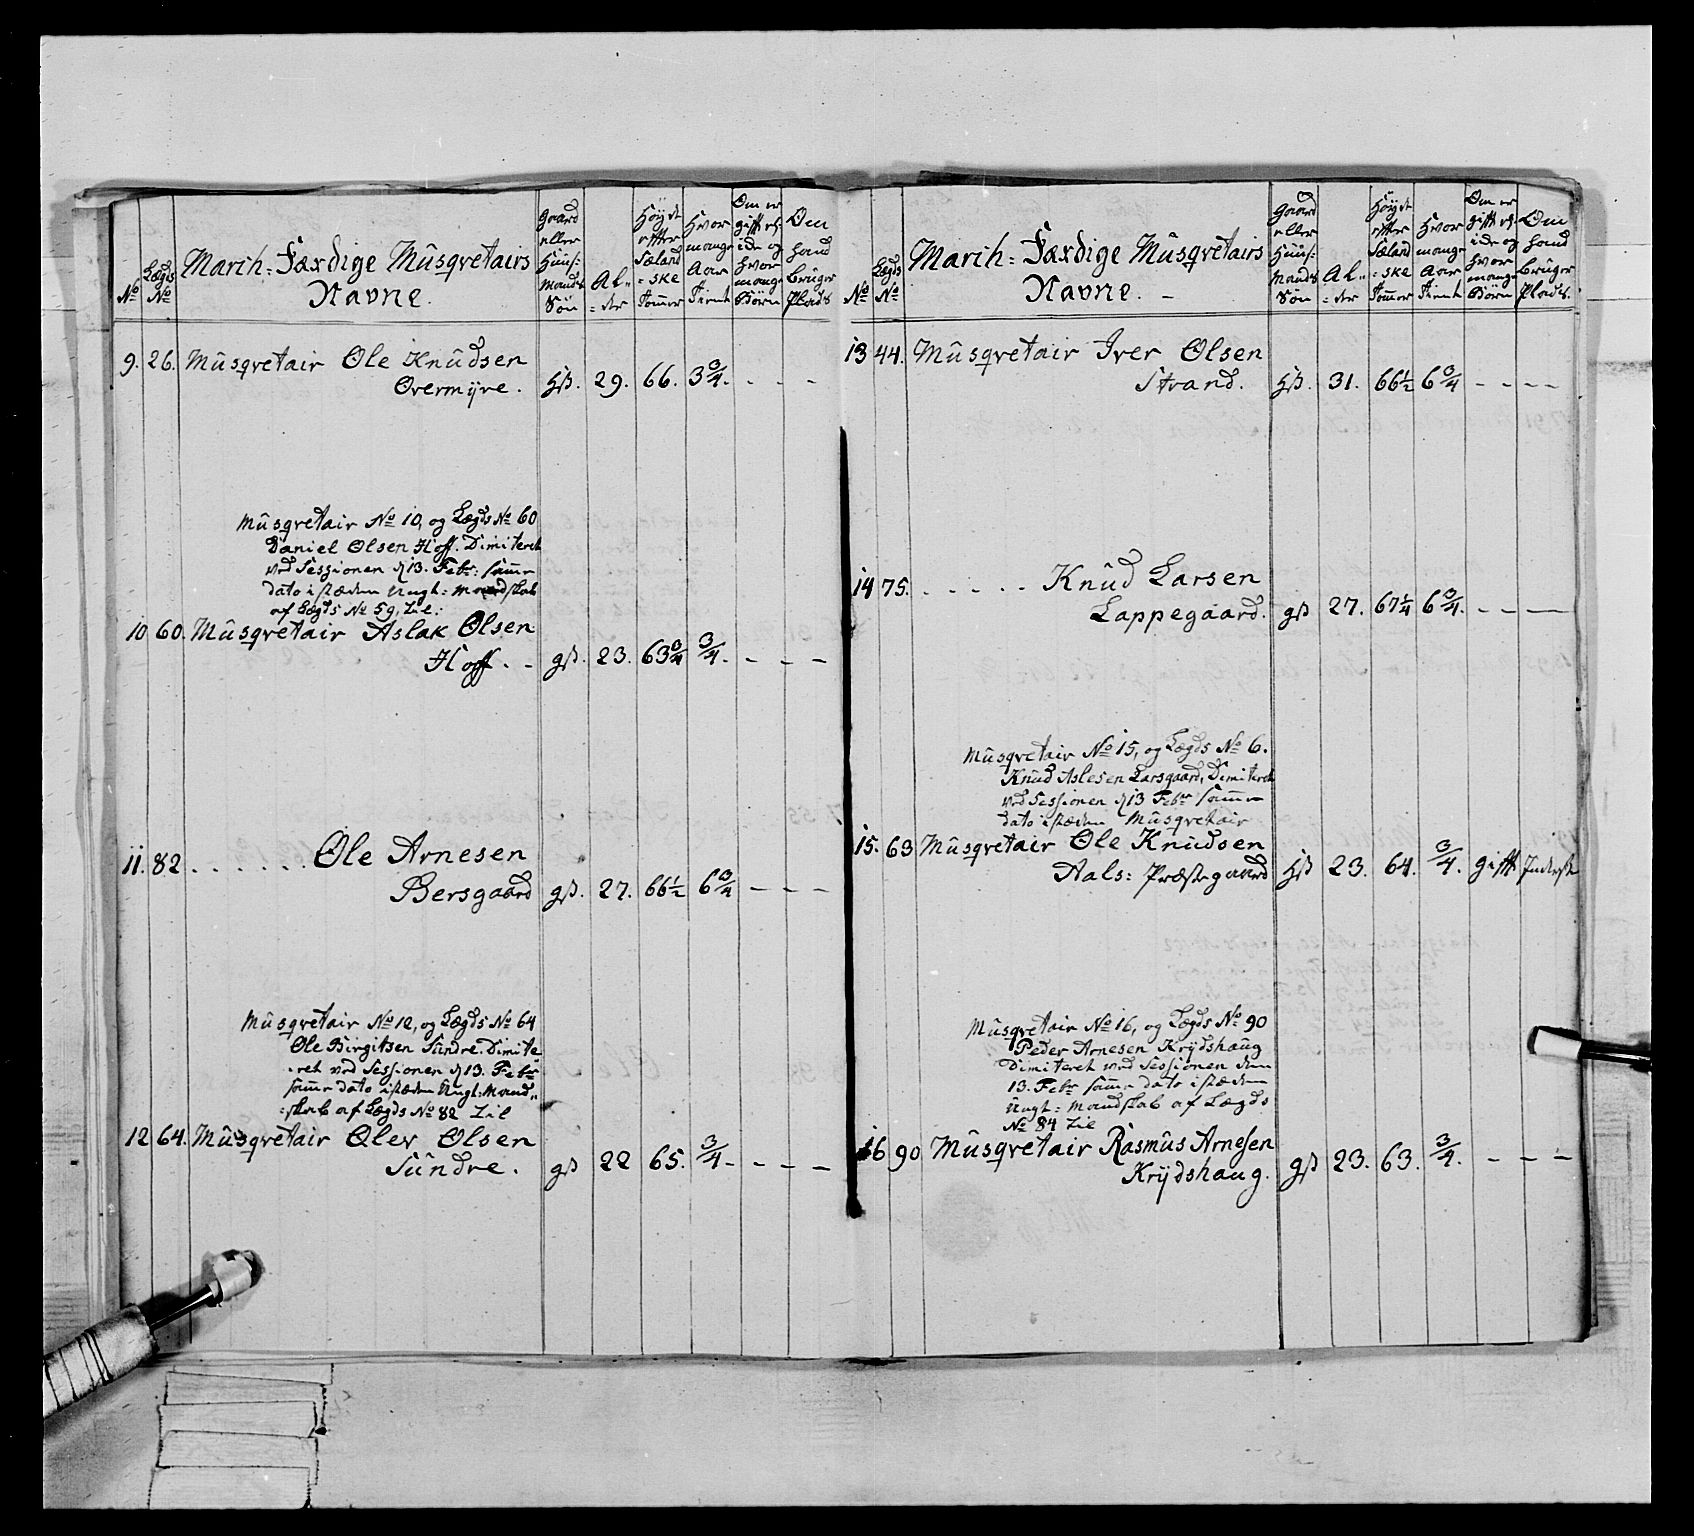 No
Lægds No
March: Færdige Musqvetairs
Navne.
Gaard eller Huus: Mands Søn
Al„ :der
Høyde efter Sæland :ske Tommer
Hvor mange Aar Tient
Om er gift eller ide og hvor mange Børn
Om hand bruger Plads
9. 26. Musqvetair Ole Knudsen
Overmÿre. Hß. 29. 66. 3 3/4. - - -
Musqvetair No 10, og Lægds No 60
Daniel Olsen Hoff. Dimiteret
ved Sessionen d 13. Febr: samme
dato i stæden Ungt: Mandskab
af Lægds No 59, Lil:
10 60. Musqvetair Aslak Olsen
Hoff. - gß. 23. 63 3/4 3/4. - - -
11. 82 . . . . . . Ole Arnesen
Bersgaard gß. 27. 66 1/2 6 3/4 - - -
Musqvetair No 12, og Lægds No 64
Ole Birgitsen Sundre. Dimite„
:ret ved Sessionen d 13. Febr
samme dato i stæden Ungt: Mand„
:skab af Lægds No 82 Lil
12 64. Musqvetair Olev Olsen
Sundre. gß 22 65. 3/4 - - - -
No
Lægds No
March: Færdige Musqvetairs
Navne. -
Gaard eller Huus: Mands Søn
Al„ :der
Høyde efter Sæland :ske Tommer
Hvor mange Aar Tient
Om er gift eller ide og hvor mange Børn
Om hand bruger Plads.
13 44. Musqvetair Iver Olsen
Strand. Hß. 31. 66 1/2 6 3/4 - - - -
14 75. . . . . . Knud Larsen
Lappegaard. gß 27. 67 1/4 6 3/4. - - -
Musqvetair No 15, og Lægds No 6.
Knud Aslesen Larsgaard, Dimiteret
ved Sessionen d 13 Febr samme
dato i stæden Musqvetair
15. 63 Musqvetair Ole Knudsen
Aals: Præstegaard Hß 23. 64. 3/4. gift Inderste
Musqvetair No 16, og Lægds No 90
Peder Arnesen Krÿdshaug
Dimiteret ved Sessionen den
13. Febr samme dato i stæden
Ungt: Mandskab af Lægds
No 84 Lil
16 90 Musqvetair Rasmus Arnesen
Krÿdshaug. gß 23. 63. 3/4. - - -